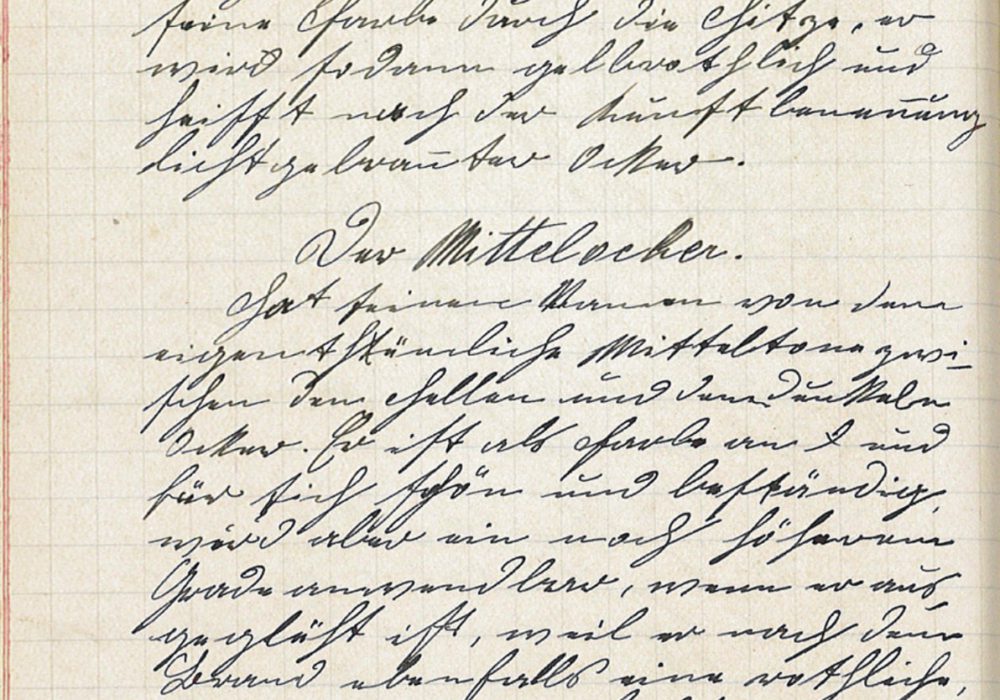 seine Farbe durch die Hitze, er
wird sodann gelbrothlich und
heißt nach der Kunstbenennung
lichtgebrannter Ocker.
Der Mittelocker.
Hat seinen Namen von dem
eigenthümliche Mitteltone zwi-
schen dem hellen und dem dunkeln
Ocker. Er ist als Farbe an und
für sich schön und beständig,
wird aber ein noch höherem
Grade anwendbar, wenn er aus
geglüht ist, weil er nach dem
Brand ebenfalls eine rothliche,